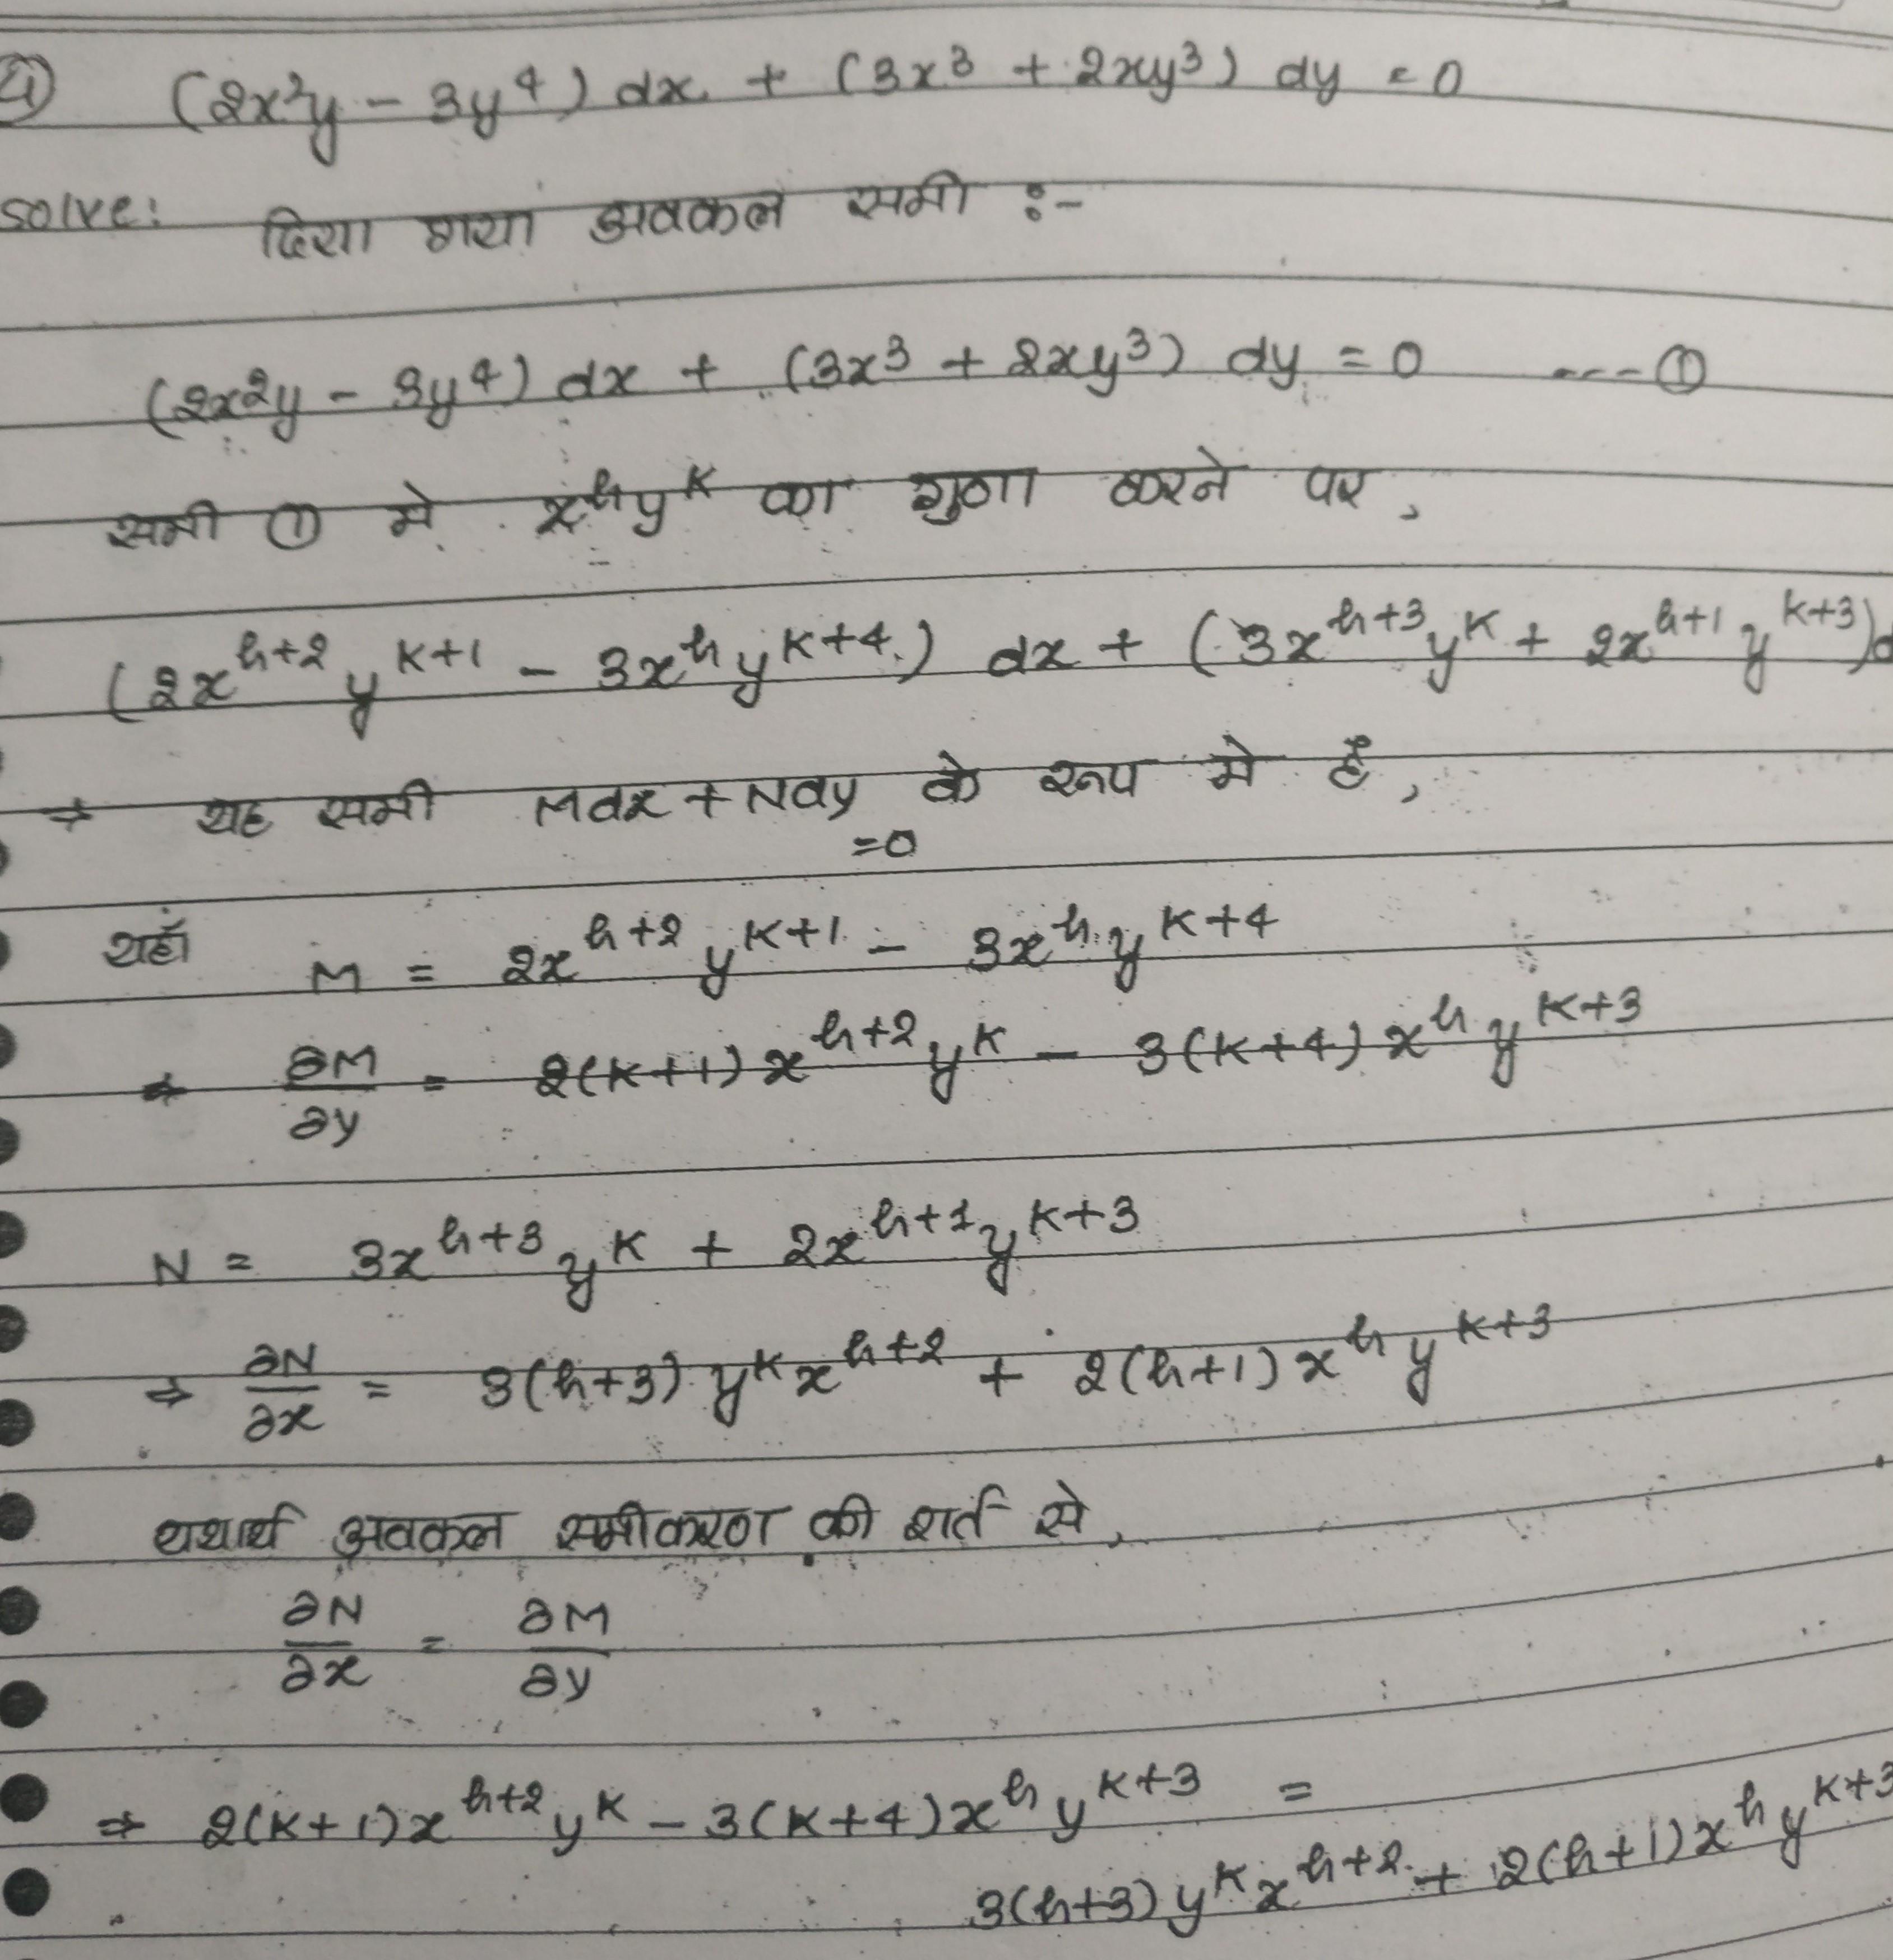 ④ (2x²y - 3y⁴) dx + (3x³ + 2xy³) dy = 0
solve: दिया गया अवकल समी :-
(2x²y - 3y⁴) dx + (3x³ + 2xy³) dy = 0 ---- ①
समी ① मे x^h y^k का गुणा करने पर,
(2x^{h+2} y^{k+1} - 3x^h y^{k+4}) dx + (3x^{h+3} y^k + 2x^{h+1} y^{k+3}) d
→ यह समी Mdx + Ndy के रूप मे है,
=0
यहाँ M = 2x^{h+2} y^{k+1} - 3x^h y^{k+4}
⇒ ∂M/∂y = 2(k+1) x^{h+2} y^k - 3(k+4) x^h y^{k+3}
N = 3x^{h+3} y^k + 2x^{h+1} y^{k+3}
⇒ ∂N/∂x = 3(h+3) y^k x^{h+2} + 2(h+1) x^h y^{k+3}
यथार्थ अवकल समीकरण की शर्त से,
∂N/∂x = ∂M/∂y
⇒ 2(k+1) x^{h+2} y^k - 3(k+4) x^h y^{k+3} =
3(h+3) y^k x^{h+2} + 2(h+1) x^h y^{k+3}